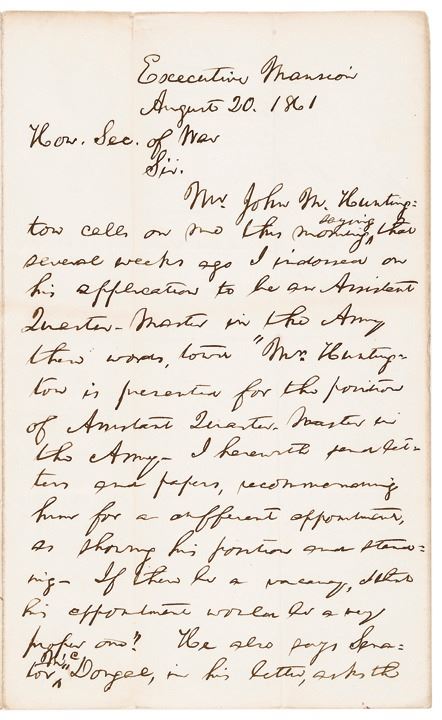 Executive Mansion
August 20. 1861
Hon. Sec. of War
Sir.
Mr. John M. Hunting-
ton calls on me this morning, saying that
several weeks ago I indorsed on
his application to be an Assistant
Quarter-Master in the Army
these words, towit "Mr. Hunting-
ton is presented for the position
of Assistant Quarter-Master in
the Army- I herewith send let-
ters and papers, recommending
him for a different appointment,
as showing his position and stand-
ing- If there be a vacancy,
his appointment would be a very
proper one." He also says Sena-
tor McDougal, in his letter, asks the